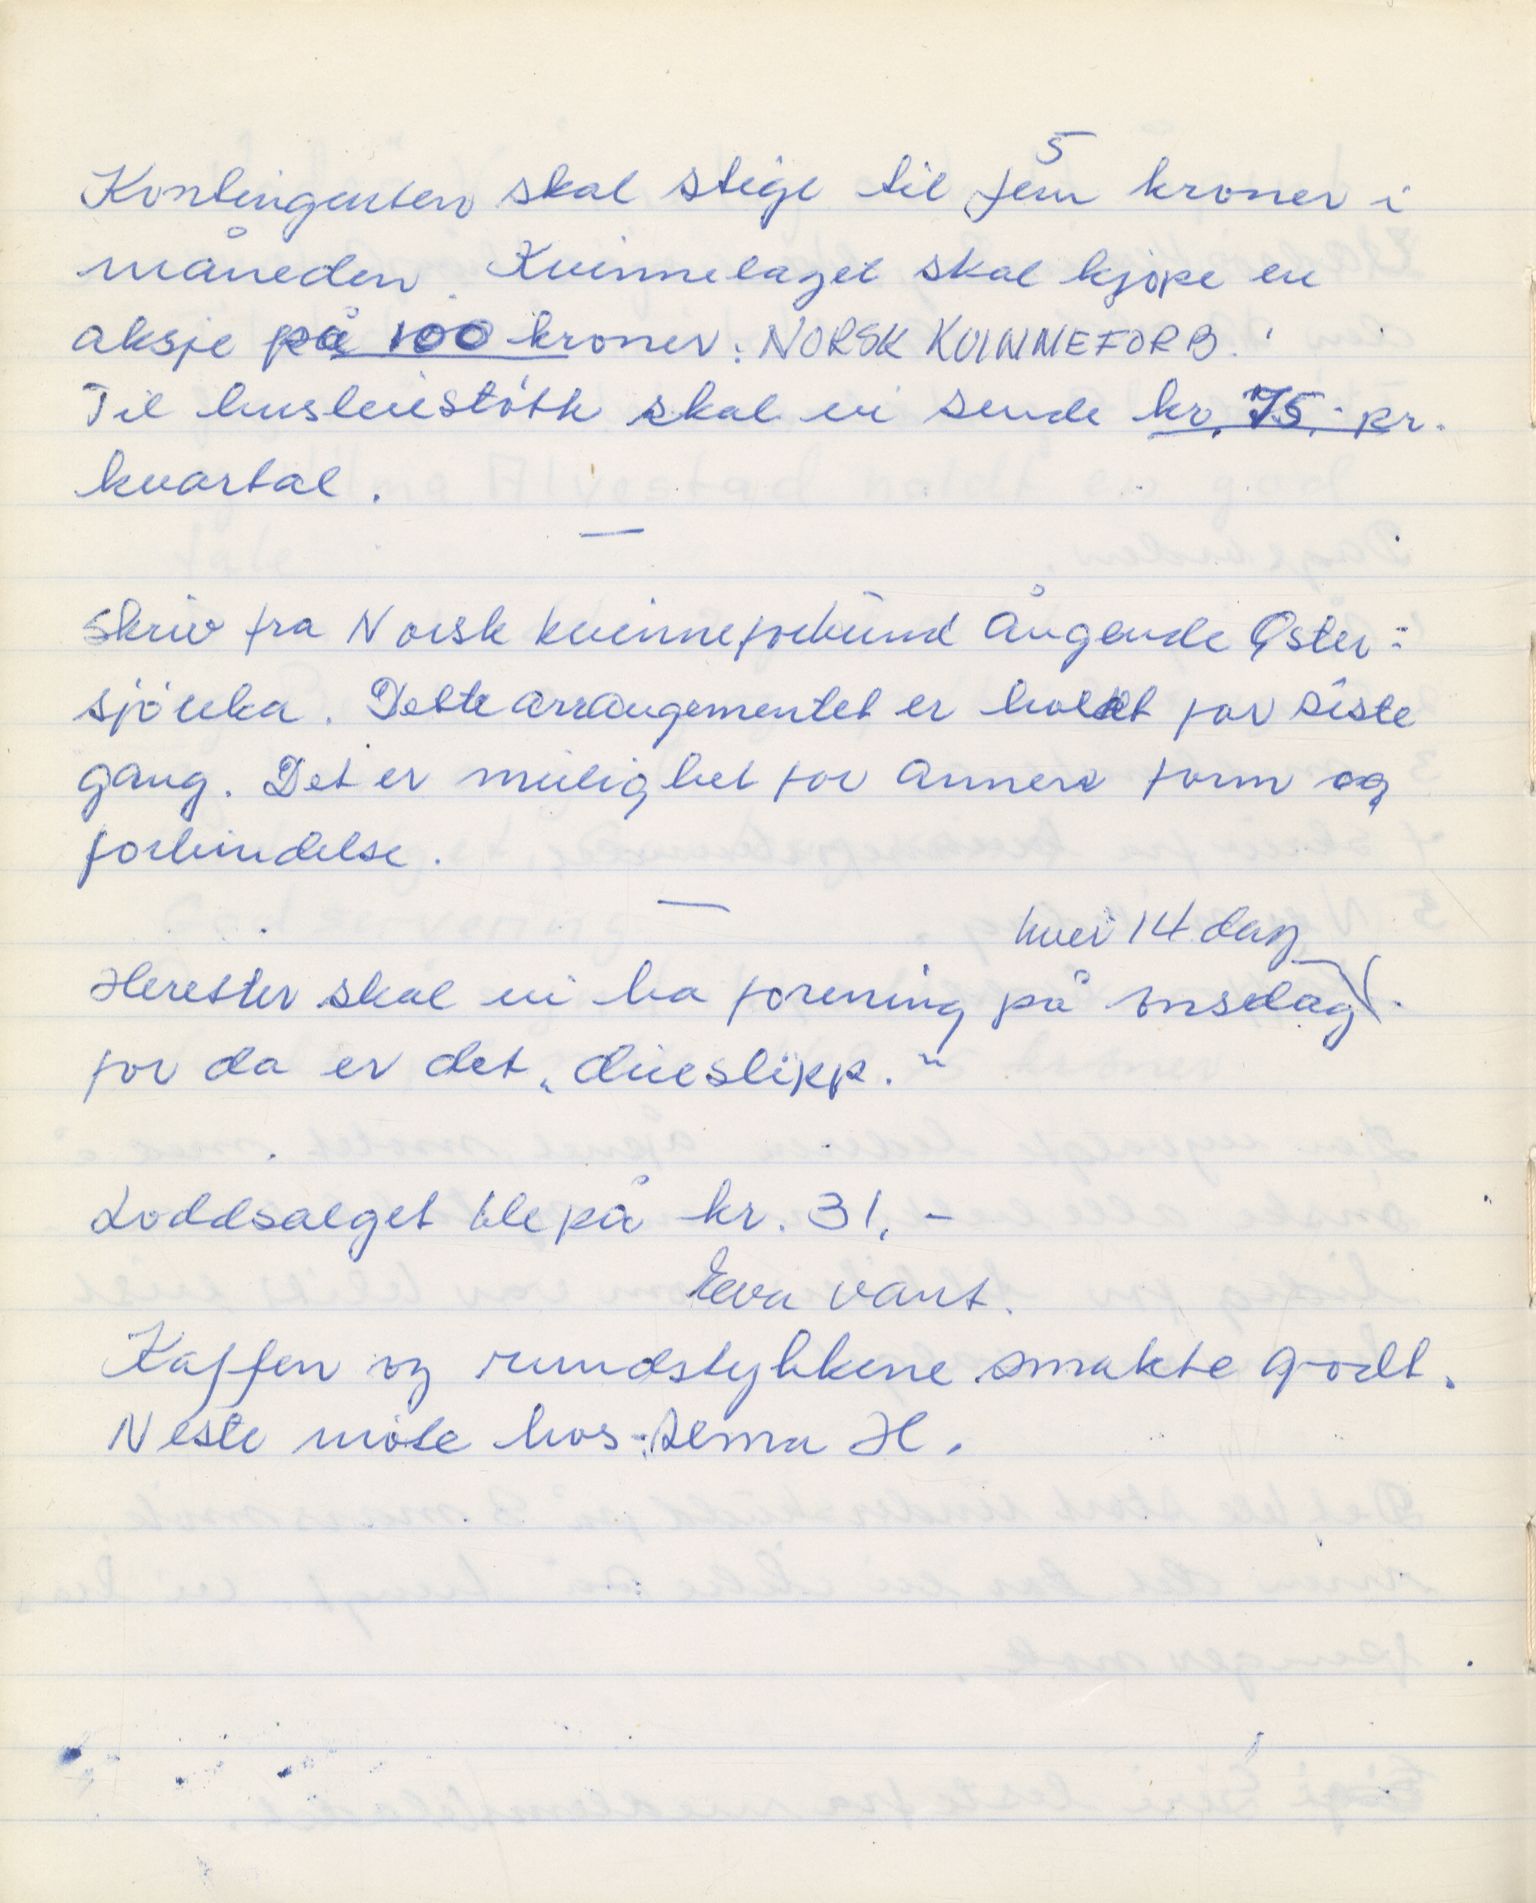 5
Kontingenten skal stige til fem kroner i
måneden. Kvinnelaget skal kjøpe en
aksje på 100 kroner: NORSK KVINNEFORB.
Til husleiestøtte skal vi sende kr. 75,- pr.
kvartal.
—
Skriv fra Norsk kvinneforbund Ångende Öster=
sjöuka. Dette arrangementet er holdt for siste
gang. Det er mulighet for annere form og
forbindelse.
—
hver 14 dag
Heretter skal vi ha forening på onsdag.
for da er det „dueslipp."
Loddsalget ble på kr. 31,-
Eva vant.
Kaffen og rundstykkene smakte godt.
Neste møte hos: H.